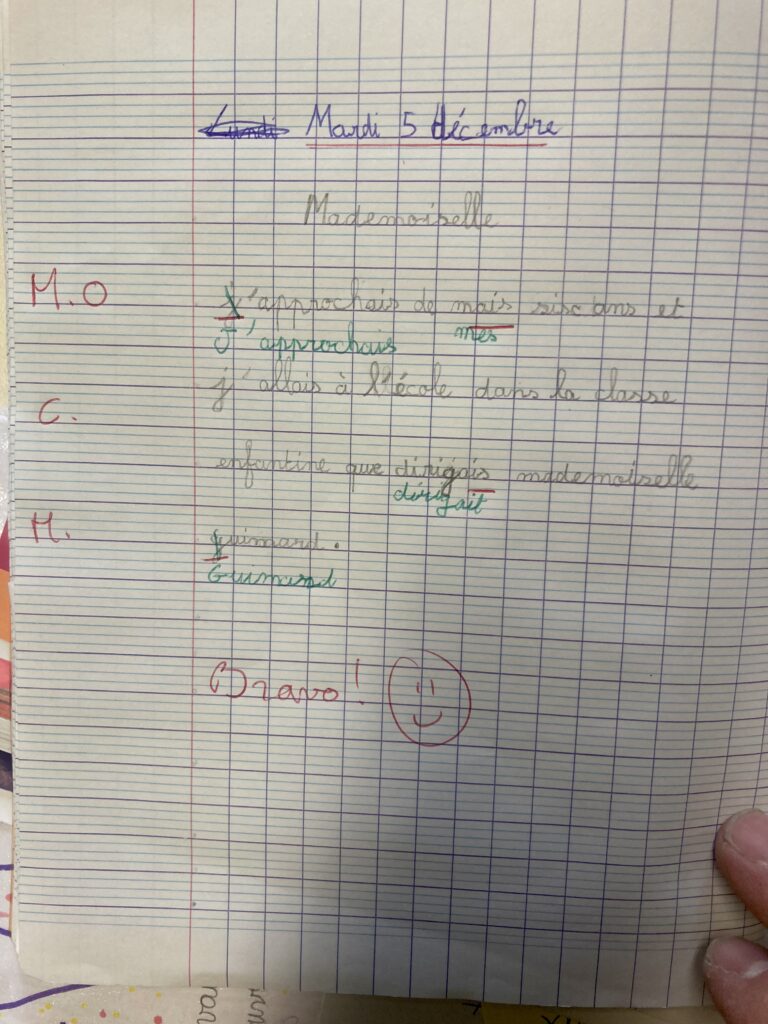 Lundi Mardi 5 décembre
Mademoiselle
M.O j'approchais de mais sisc ans et
J'approchais mes
j'allais à l'école dans la classe
C.
enfantine que dirigais mademoiselle
dirigait
M. guimard.
Guimard
Bravo!